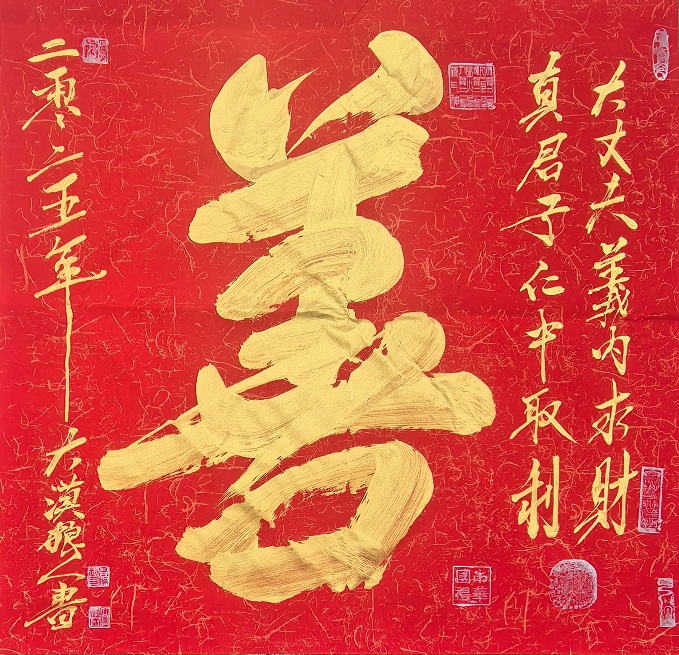 大丈夫義内求財
真君子仁中取利
善
二零二五年
大漠狼人書
中華國禮